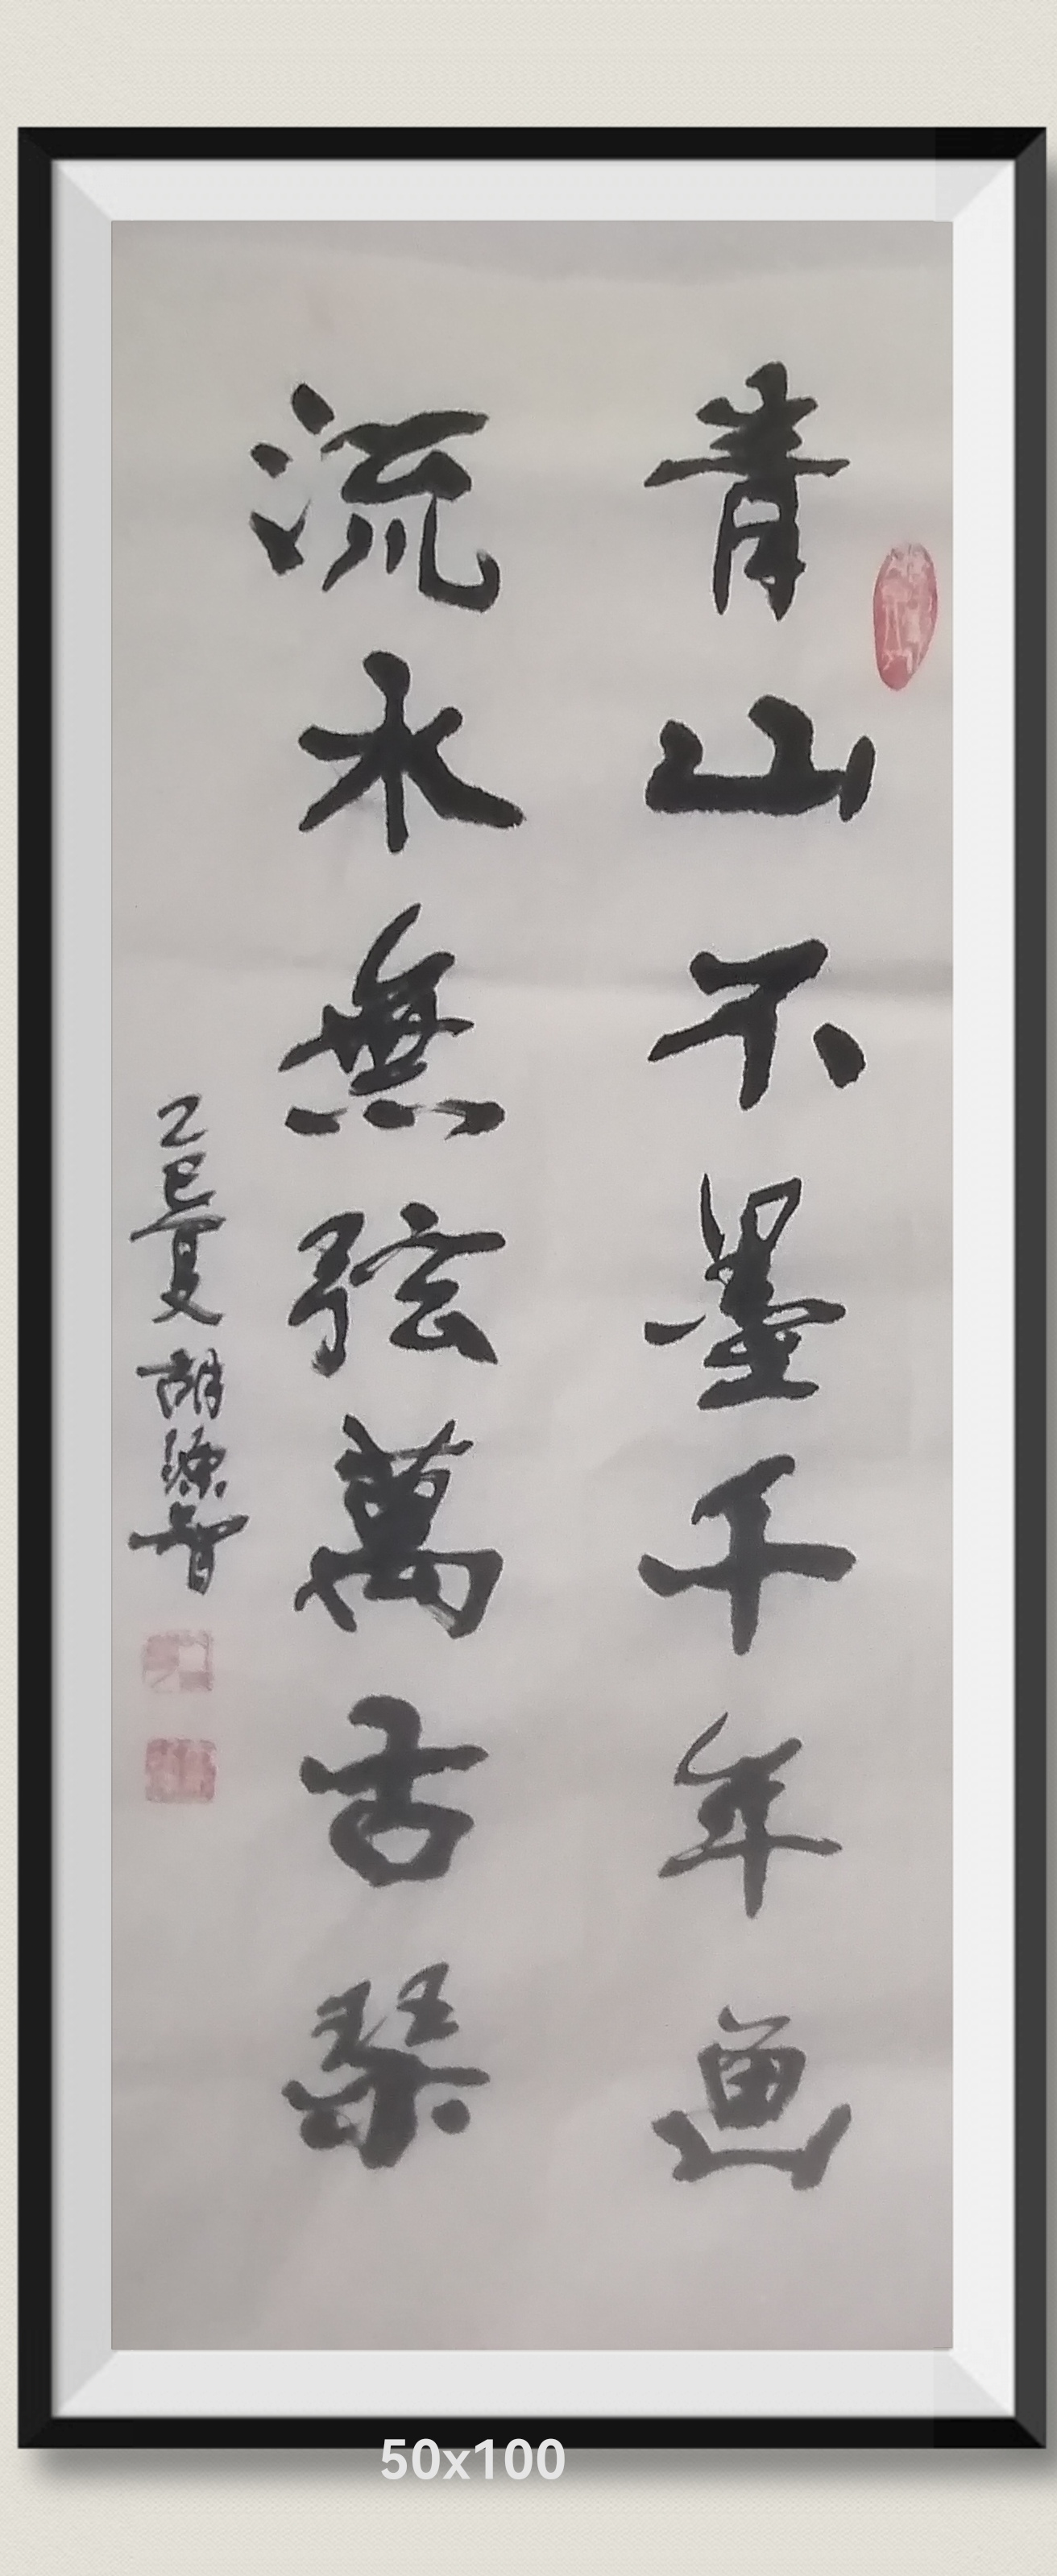 青山不墨千年画
流水無弦萬古琴
乙巳夏 胡源智
50x100